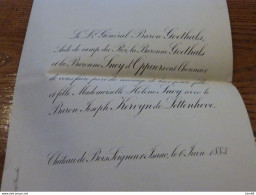 Le Lt Général Baron Goethals
Aide de camp du Roi, la Baronne Goethals
et la Baronne Snoy d'Oppuers ont l'honneur
de vous faire part du mariage de leur petite fille
et fille Mademoiselle Hélène Snoy avec le
Baron Joseph Kervyn de Lettenhove.
Château de Bois Seigneur Isaac, le 6 Juin 1883